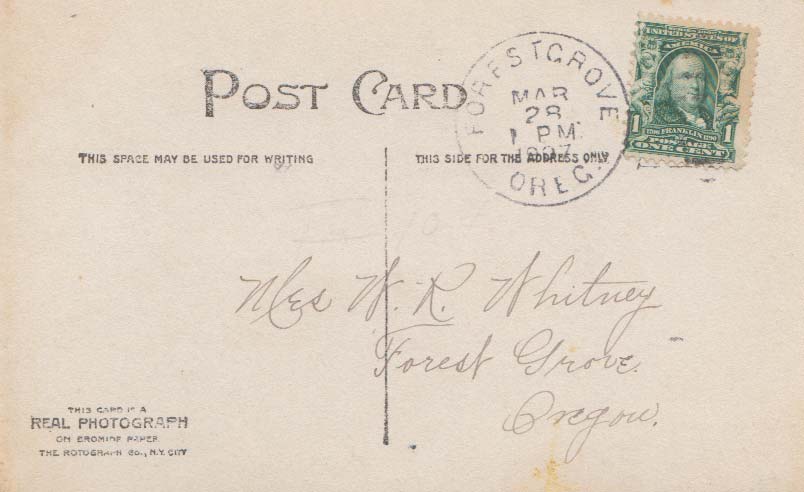 POST CARD
THIS SPACE MAY BE USED FOR WRITING
THIS SIDE FOR THE ADDRESS ONLY
FOREST GROVE
MAR
28
1 PM
1907
OREG.
UNITED STATES OF
AMERICA
1706 FRANKLIN 1790
POSTAGE
1 ONE CENT 1
Mrs W. R. Whitney
Forest Grove.
Oregon.
THIS CARD IS A
REAL PHOTOGRAPH
ON BROMIDE PAPER
THE ROTOGRAPH CO., N.Y. CITY